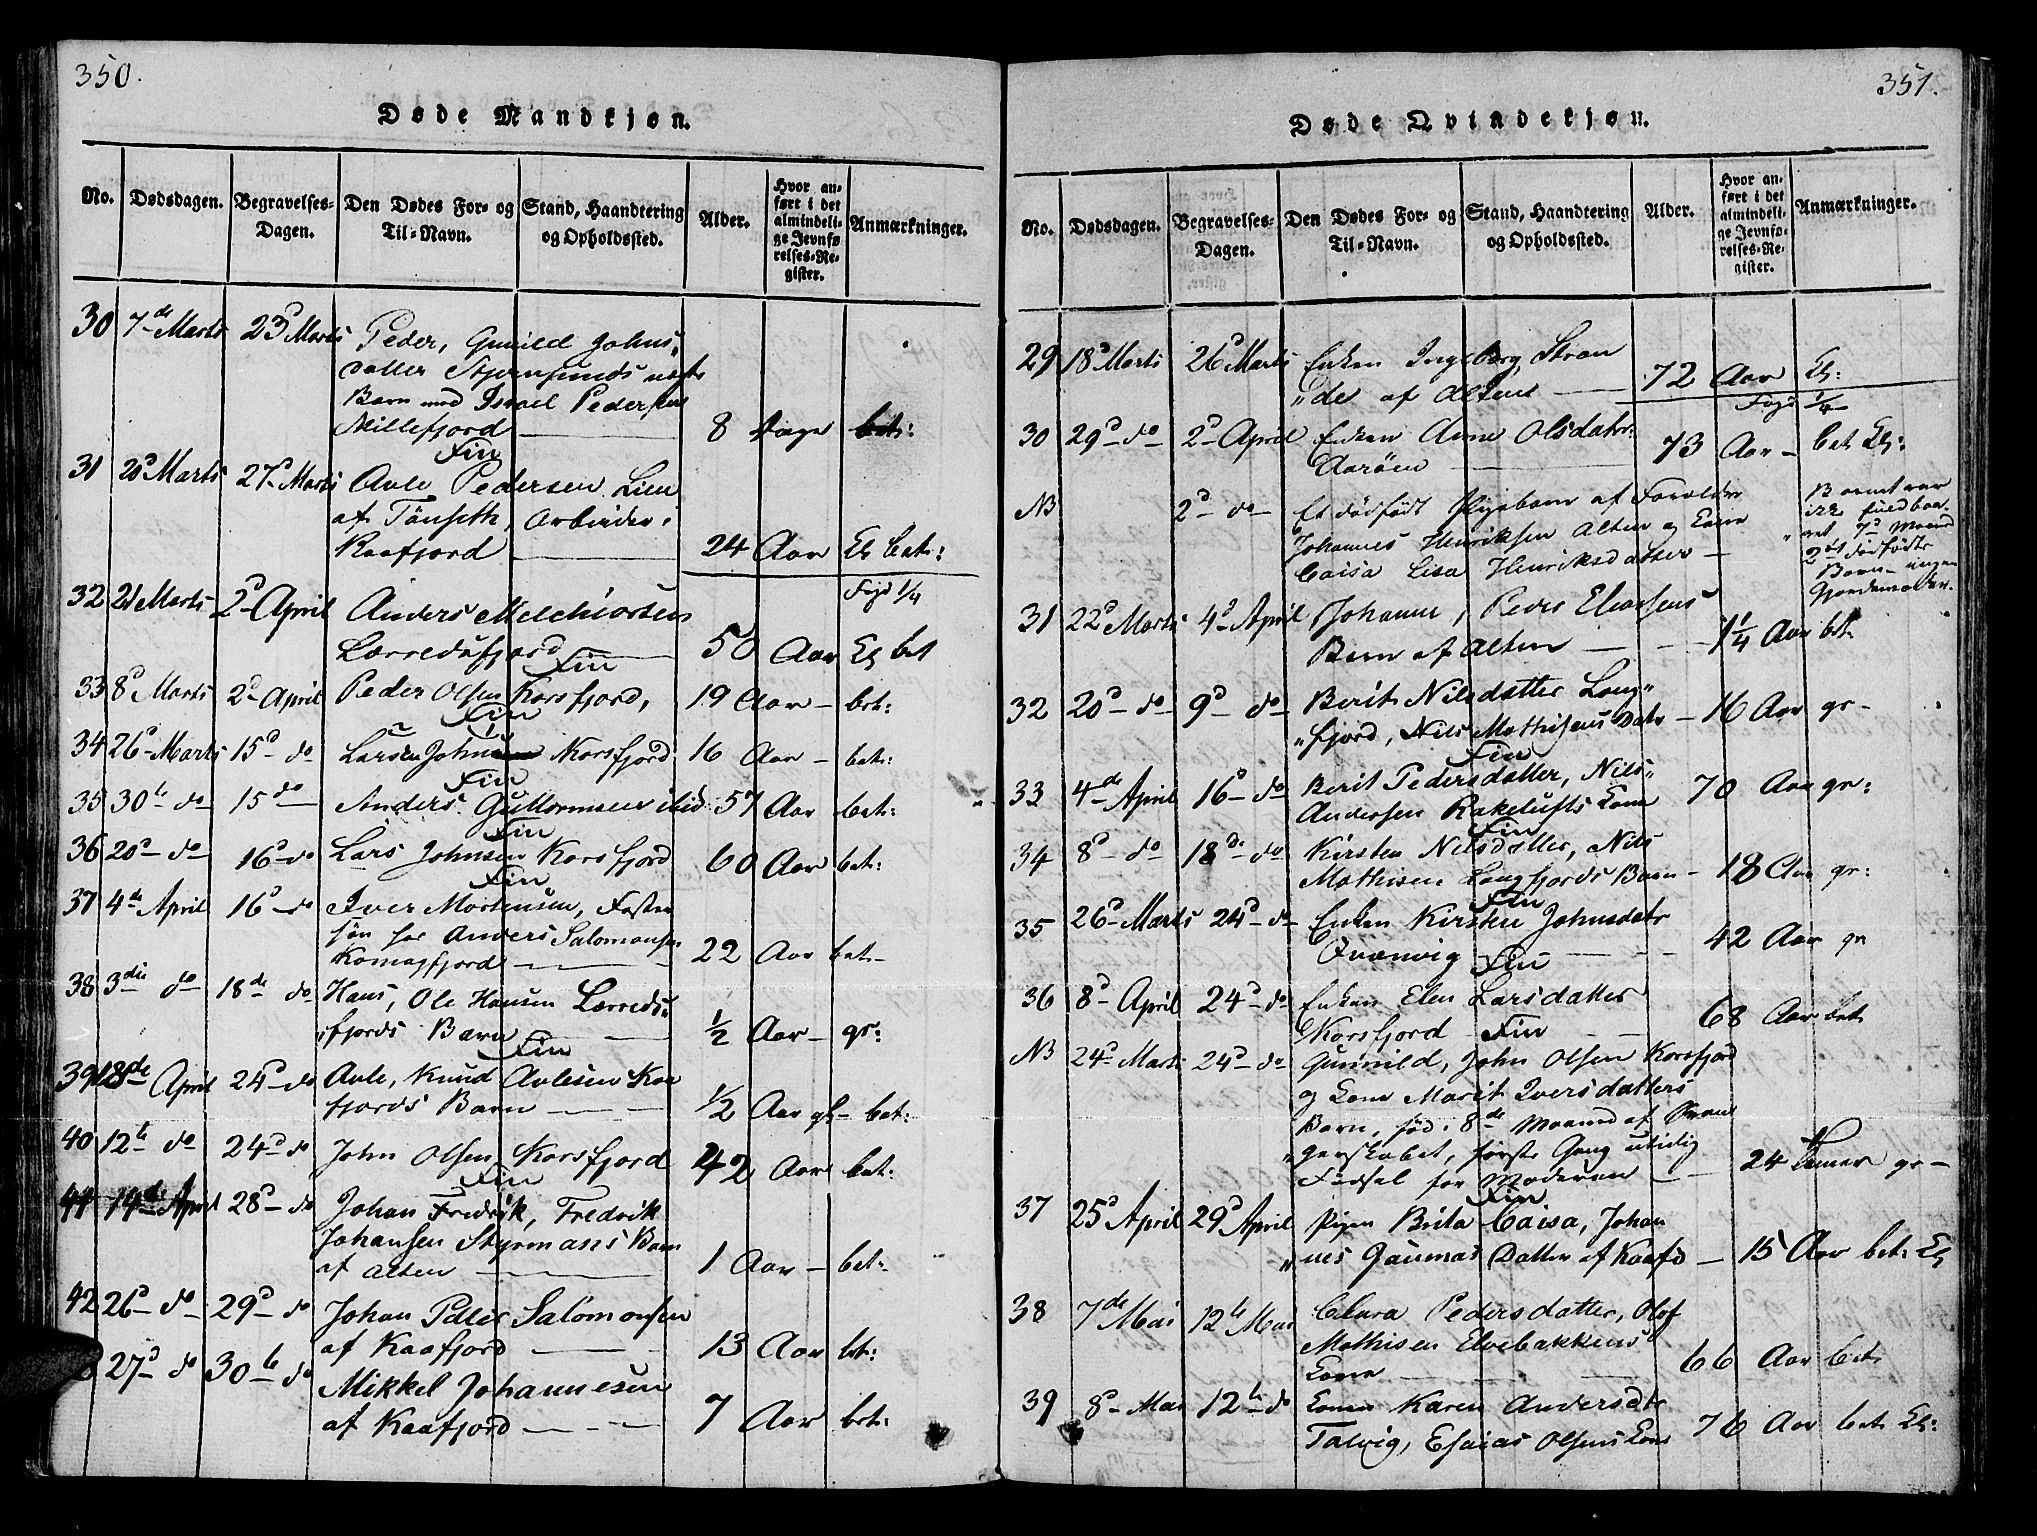 350.
Døde Mandkjøn.
No. Dødsdagen. Begravelses-Dagen. Den Dødes For- og Til-Navn. Stand, Haandtering og Opholdssted. Alder. Hvor anført i det almindelige Jevnførelses-Register. Anmærkninger.
30 7de Marts 23d Marts Peder, Gunild Johns„
datter Stjernsunds uægte
Barn med Israel Pedersen
Nillefjord 8 Dage bet:
Fin
31 20d Marts 27d Marts Avle Pedersen Lien
af Tönseth, Arbeider i
Kaafjord 24 Aar Eg bet:
Fogd 1/4
32 21 Marts 2d April Anders Melchiorsen
Lerredsfjord 50 Aar Eg bet
Fin
33 8d Marts 2d April Peder Olsen Korsfjord, 19 Aar – bet:
Fin
34 26d Marts 15d do Lars Johnsen Korsfjord 16 Aar – bet:
Fin
35 30te do 15 do Anders Guttormsen ibid 57 Aar bet:
Fin
36 20d do 16d do Lars Johnsen Korsfjord 60 Aar bet:
Fin
37 4de April 16d do Iver Mortensen, Foster
søn for Anders Salomonsen
Komagfjord 22 Aar bet–
38 3die do 18de do Hans, Ole Hansen Lerreds„
„fjords Barn 1/2 Aar – gr:
Fin
39 18de April 24d do Avle, Knud Avlesen Kaa
fjords Barn 1/2 Aar bet:
40 12te do 24d do John Olsen Korsfjord 42 Aar bet:
Fin
41 14de April 28d do Johan Fredrik, Fredrik
Johansen Styrmans Barn
af Alten 1 Aar – bet:
42 26d do 29d do Johan Peter Salomonsen
af Kaafjord 13 Aar bet:
27d do 30te do Mikkel Johannesen
af Kaafjord 7 Aar bet:
351.
Døde Qvindekjøn.
No. Dødsdagen. Begravelses-Dagen. Den Dødes For- og Til-Navn. Stand, Haandtering og Opholdssted. Alder. Hvor anført i det almindelige Jevnførelses-Register. Anmærkninger.
29 18d Marts 26d Marts Enken Ingeborg Stran
„de af Alten 72 Aar Eg:
Fogd 1/4
30 29d do 2d April Enken Anne Olsdatr:
Aarøen 73 Aar – bet Eg:
NB 2d do Et dødfødt Pigebarn af Forældre
Johannes Henriksen Alten og Kone
Caisa Lisa Henriksdatter –
Barnet var
ikke fuldbaa„
„ret 7d Maaned
2det dødfødte
Barn – ingen
Gjordemoder.
31 22d Marts 4d April Johanne, Peder Eliasens
Barn af Alten 1 1/4 Aar bet
32 20d do 9d do Berit Nilsdatter Lang„
„fjord, Nils Mathisens Datr – 16 Aar gr–
Fin
33 4de April 16d do Berit Pedersdatter, Nils„
Andersen Rakelufts Kone 70 Aar gr:
Fin
34 8d do 18de do Kirsten Nilsdatter, Nils
Mathisen Langfjords Barn – 18 Aar gr:
Fin
35 26d Marts 24d do Enken Kirsten Johnsdatr
Qvænvig 42 Aar gr
Fin
36 8d April 24d do Enken Elen Larsdatter
Korsfjord Fin 68 Aar bet
NB 24d Marts 24d do Gunnild, John Olsen Korsfjord
og Kone Marit Iversdatters
Barn, fød i 8de Maaned af Svan
„gerskabet, første Gang utidig
Fødsel for Moderen – 24 Timer gr–
Fin
37 25d April 29d April Pigen Brita Caisa, Johan
„nes Gaunas Datter af Kaafd – 15 Aar bet: Eg
38 7de Mai 12te Mai Clara Pedersdatter, Olof
Mathisen Elvebakkens
Kone 66 Aar bet
39 8d Mai 12te do Konen Karen Andersdtr
Talvig, Esaias Olsens Kone 76 Aar bet Eg: